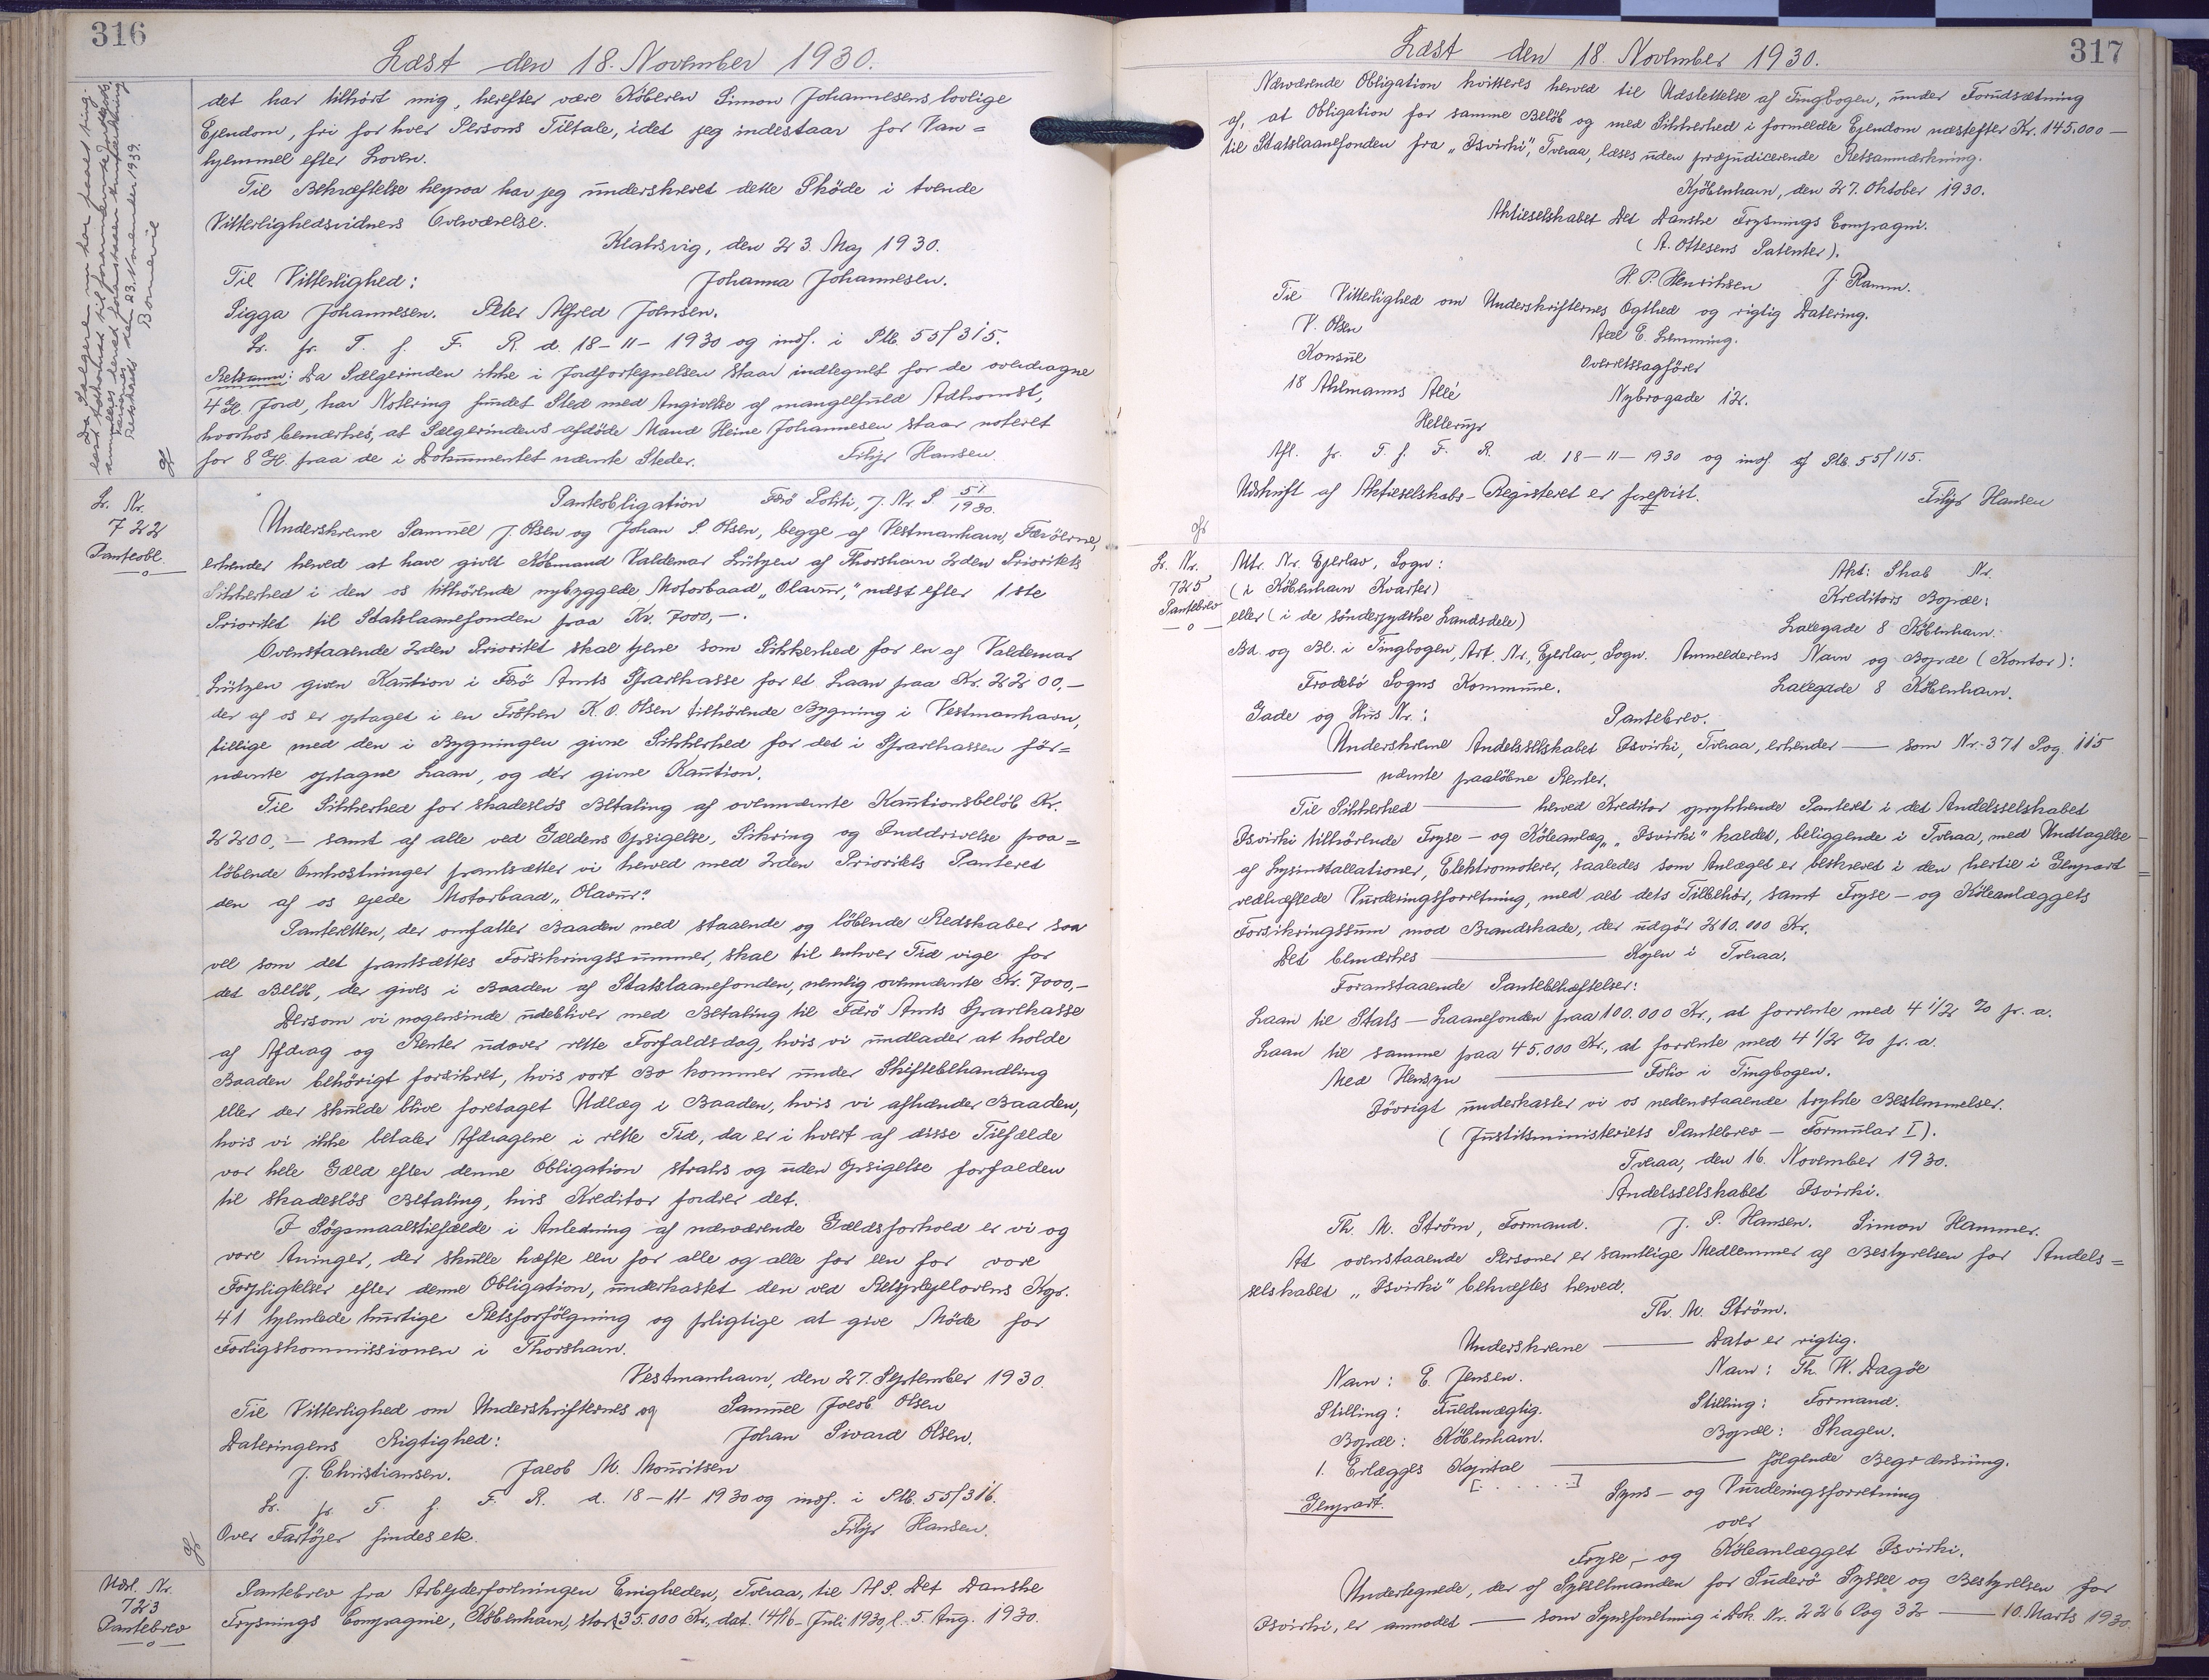 316
Læst den 18. November 1930.
det har tilhørt mig, herefter være Köberen Simon Johannesens lovlige
Ejendom, fri for hver Persons Tiltale, idet jeg indestaar for Van=
hjemmel efter Loven.
Til Bekræftelse herpaa har jeg underskrevet dette Sköde i tvende
Vitterlighedsvidners Overværelse.
Klaksvig, den 23. Maj 1930.
Til Vitterlighed: Johanna Johannesen.
Sigga Johannesen. Peter Alfred Joensen.
Lr. fr. T. f. F. R. d. 18-11-1930 og indf. i Ptb. 55/315.
Retsanm: Da Sælgerinden ikke i Jordfortegnelsen staar indtegnet for de overdragne
4 Gl. Jord, har Notering fundet Sted med Angivelse af mangelfuld Adkomst,
hvorhos bemærkes, at Sælgerindens afdöde Mand Heine Johannesen staar noteret
for 8 Gl. paa de i Dokumentet nævnte Steder. Filip Hansen
Lr. Nr.
722
Panteobl.
Panteobligation Færö Politi, J. Nr. P 51/1930.
Underskrevne Samuel J. Olsen og Johan S. Olsen, begge af Vestmanhavn, Færöerne,
erkender herved at have givet Købmand Valdemar Lützen af Thorshavn 2den Prioritets
Sikkerhed i den os tilhörende nybyggede Motorbaad „Olavur", næst efter 1ste
Prioritet til Statslaanefonden paa Kr. 7000,-.
Ovenstaaende 2den Prioritet skal tjene som Sikkerhed for en af Valdemar
Lützen given Kaution i Færö Amts Sparekasse for et Laan paa Kr. 2200,-
der af os er optaget i en Fröken K. O. Olsen tilhörende Bygning i Vestmanhavn,
tillige med den i Bygningen givne Sikkerhed for det i Sparekassen før=
nævnte optagne Laan, og der givne Kaution.
Til Sikkerhed for skadeslös Betaling af ovennævnte Kautionsbeløb Kr.
2200,- samt af alle ved Gældens Opsigelse, Sikring og Inddrivelse paa=
löbende Omkostninger pantsætter vi herved med 2den Prioritets Panteret
den af os ejede Motorbaad „Olavur."
Panteretten, der omfatter Baaden med staaende og löbende Redskaber saa
vel som det pantsættes Forsikringssummer, skal til enhver Tid vige for
det Beløb, der gives i Baaden af Statslaanefonden, nemlig ovennævnte Kr. 7000,-
Dersom vi nogensinde udebliver med Betaling til Færö Amts Sparekasse
af Afdrag og Renter udover rette Forfaldsdag, hvis vi undlader at holde
Baaden behörigt forsikret, hvis vort Bo kommer under Skiftebehandling
eller der skulde blive foretaget Udlæg i Baaden, hvis vi afhænder Baaden,
hvis vi ikke betaler Afdragene i rette Tid, da er i hvert af disse Tilfælde
vor hele Gæld efter denne Obligation straks og uden Opsigelse forfalden
til skadeslös Betaling, hvis Kreditor fordrer det.
I Sögsmaalstilfælde i Anledning af nærværende Gældsforhold er vi og
vore Arvinger, der skulle hæfte een for alle og alle for een for vore
Forpligtelser efter denne Obligation, underkastet den ved Retsplejelovens Kap.
41 hjemlede hurtige Retsforfölgning og pligtige at give Möde for
Forligskommissionen i Thorshavn.
Vestmanhavn, den 27. September 1930.
Til Vitterlighed om Underskrifternes og Samuel Jacob Olsen
Dateringens Rigtighed: Johan Sivard Olsen.
J. Christiansen. Jacob M. Mouritsen
Lr. fr. T. f. F. R. d. 18-11-1930 og indf. i Ptb. 55/316.
Over Fartöjer findes ek. Filip Hansen.
Udsl. Nr.
723
Pantebrev
Pantebrev fra Arbejderforeningen Enigheden, Tveraa, til A/S. Det Danske
Frysnings Compagnie, København, stort 35.000 Kr., dat. 14/16- Juli 1930, l. 5. Aug. 1930.
317
Læst den 18. November 1930.
Nærværende Obligation kvitteres herved til Udslettelse af Tingbogen, under Forudsætning
af, at Obligation for samme Beløb og med Sikkerhed i formeldte Ejendom næstefter Kr. 145.000 —
til Statslaanefonden fra „Isvirki", Tveraa, læses uden præjudicerende Retsanmærkning.
Kjöbenhavn, den 27. Oktober 1930.
Aktieselskabet Det Danske Frysnings Compagni.
(A. Ottesens Patenter).
H. P. Henriksen J. Ramm.
Til Vitterlighed om Underskrifternes Ægthed og rigtig Datering.
V. Olsen Axel E. Lemming.
Konsul Overretssagförer
18 Ahlmanns Allé Nybrogade 12.
Hellerup
Afl. fr. T. f. F. R. d. 18-11-1930 og indf. af Ptb. 55/115.
Udskrift af Aktieselskabs-Registeret er forevist. Filip Hansen
Lr. Nr.
725
Pantebrev
Mtr. Nr. Ejerlav, Sogn: Akt: Skab Nr.
(i København Kvarter) Kreditors Bopæl:
eller (i de sönderjydske Landsdele) Laxegade 8 København.
Bd. og Bl. i Tingbogen, Art. Nr., Ejerlav, Sogn. Anmelderens Navn og Bopæl (Kontor):
Frodebö Sogns Kommune. Laxegade 8 København.
Gade og Hus Nr.: Pantebrev.
Underskrevne Andelsselskabet Isvirki, Tveraa, erkender — som Nr. 371 Pag. 115
— nævnte paaløbne Renter.
Til Sikkerhed — herved Kreditor oprykkende Panteret i det Andelsselskabet
Isvirki tilhörende Fryse- og Køleanlæg, „Isvirki" kaldet, beliggende i Tveraa, med Undtagelse
af Lysinstallationer, Elektromotorer, saaledes som Anlæget er beskrevet i den hertil i Genpart
vedhæftede Vurderingsforretning, med alt dets Tilbehör, samt Fryse- og Køleanlæggets
Forsikringssum mod Brandskade, der udgör 210.000 Kr.
Det bemærkes — Kajen i Tveraa.
Foranstaaende Pantebehæftelser:
Laan til Stats-Laanefonden paa 100.000 Kr., at forrente med 4 1/2 % p. a.
Laan til samme paa 45.000 Kr., at forrente med 4 1/2 % p. a.
Med Hensyn — Folio i Tingbogen.
Iövrigt underkaster vi os nedenstaaende trykte Bestemmelser.
(Justitsministeriets Pantebrev - Formular I).
Tveraa, den 16. November 1930.
Andelsselskabet Isvirki.
Th. M. Ström, Formand. J. P. Hansen. Simon Hammer.
At ovenstaaende Personer er samtlige Medlemmer af Bestyrelsen for Andels=
selskabet „Isvirki" bekræftes herved.
Th. M. Ström.
Underskrevne — Dato er rigtig.
Navn: E. Jensen. Navn: Th. W. Dagøe
Stilling: Fuldmægtig. Stilling: Formand.
Bopæl: København. Bopæl: Skagen.
1. Erlægges Kapital — følgende Begrænsning.
[. . . . .]
Genpart. Syns- og Vurderingsforretning
over
Fryse- og Köleanlægget Isvirki.
Undertegnede, der af Sysselmanden for Suderö Syssel og Bestyrelsen for
Isvirki, er anmodet — som Synsforretning i Dok. Nr. 226 Pag 32 — 10. Marts 1930.